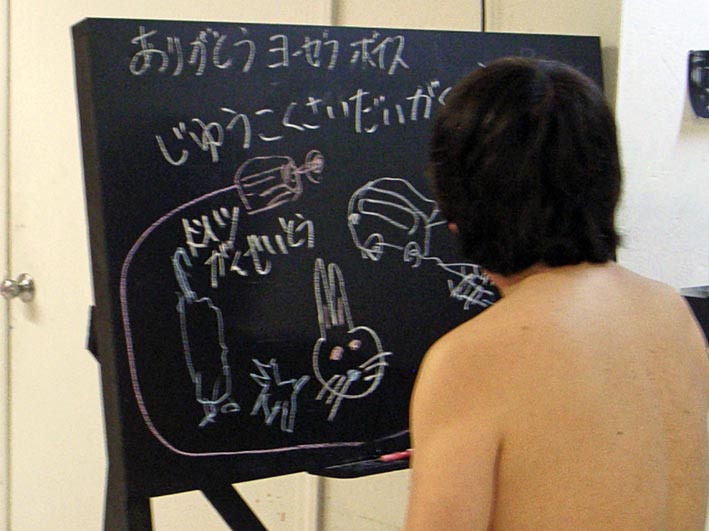 ありがとう ヨーゼフ ボイス
じゆうこくさいだいがく
ドイツ
がくせいとう